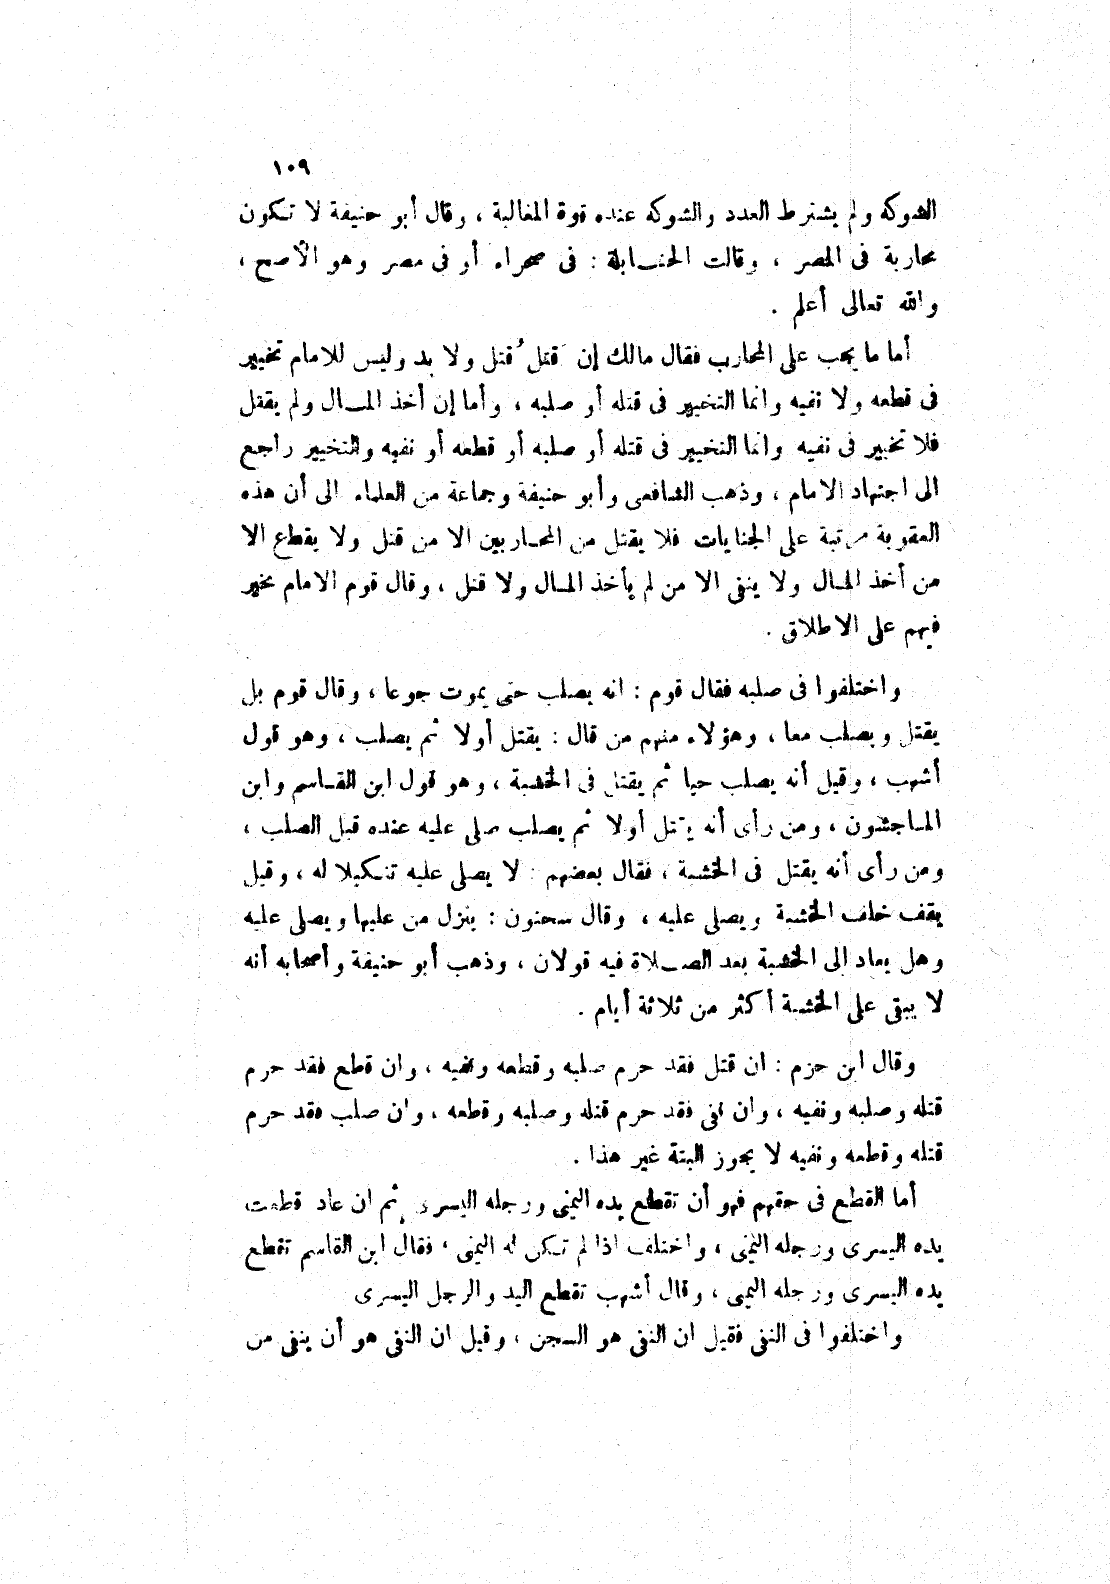 ١٠٩
الشوكه ولم يشترط العدد والشوكه عنده قوة المغالبة ، وقال أبو حنيفة لا تكون
محاربة فى المصر ، وقالت الحنابلة : فى صحراء أو فى مصر وهو الأصح ،
والله تعالى أعلم .
أما ما يجب على المحارب فقال مالك إن قَتل قُتل ولا بد وليس للامام تخيير
فى قطعه ولا نفيه وانما التخيير فى قتله أو صلبه ، وأما إن أخذ المال ولم يقتل
فلا تخيير فى نفيه وانما التخيير فى قتله أو صلبه أو قطعه أو نفيه والتخيير راجع
الى اجتهاد الامام ، وذهب الشافعى وأبو حنيفة وجماعة من العلماء الى أن هذه
العقوبة مرتبة على الجنايات فلا يقتل من المحاربين الا من قتل ولا يقطع الا
من أخذ المال ولا ينفى الا من لم يأخذ المال ولا قتل ، وقال قوم الامام مخير
فيهم على الاطلاق .
واختلفوا فى صلبه فقال قوم : انه يصلب حتى يموت جوعا ، وقال قوم بل
يقتل ويصلب معا ، وهؤلاء منهم من قال : يقتل أولا ثم يصلب ، وهو قول
أشهب ، وقيل أنه يصلب حيا ثم يقتل فى الخشبة ، وهو قول ابن القاسم وابن
الماجشون ، ومن رأى أنه يقتل أولا ثم يصلب صلى عليه عنده قبل الصلب ،
ومن رأى أنه يقتل فى الخشبة ، فقال بعضهم : لا يصلى عليه تنكيلا له ، وقيل
يقف خلف الخشبة ويصلى عليه ، وقال سحنون : ينزل من عليها ويصلى عليه
وهل يعاد الى الخشبة بعد الصلاة فيه قولان ، وذهب أبو حنيفة وأصحابه أنه
لا يبقى على الخشبة أكثر من ثلاثة أيام .
وقال ابن حزم : ان قتل فقد حرم صلبه وقطعه ونفيه ، وان قطع فقد حرم
قتله وصلبه ونفيه ، وان نفى فقد حرم قتله وصلبه وقطعه ، وان صلب فقد حرم
قتله وقطعه ونفيه لا يجوز البتة غير هذا .
أما القطع فى حقهم فهو أن تقطع يده اليمنى ورجله اليسرى ثم ان عاد قطعت
يده اليسرى ورجله اليمنى ، واختلف اذا لم تكن له اليمنى ، فقال ابن القاسم تقطع
يده اليسرى ورجله اليمنى ، وقال أشهب تقطع اليد والرجل اليسرى
واختلفوا فى النفى فقيل ان النفى هو السجن ، وقيل ان النفى هو أن ينفى من